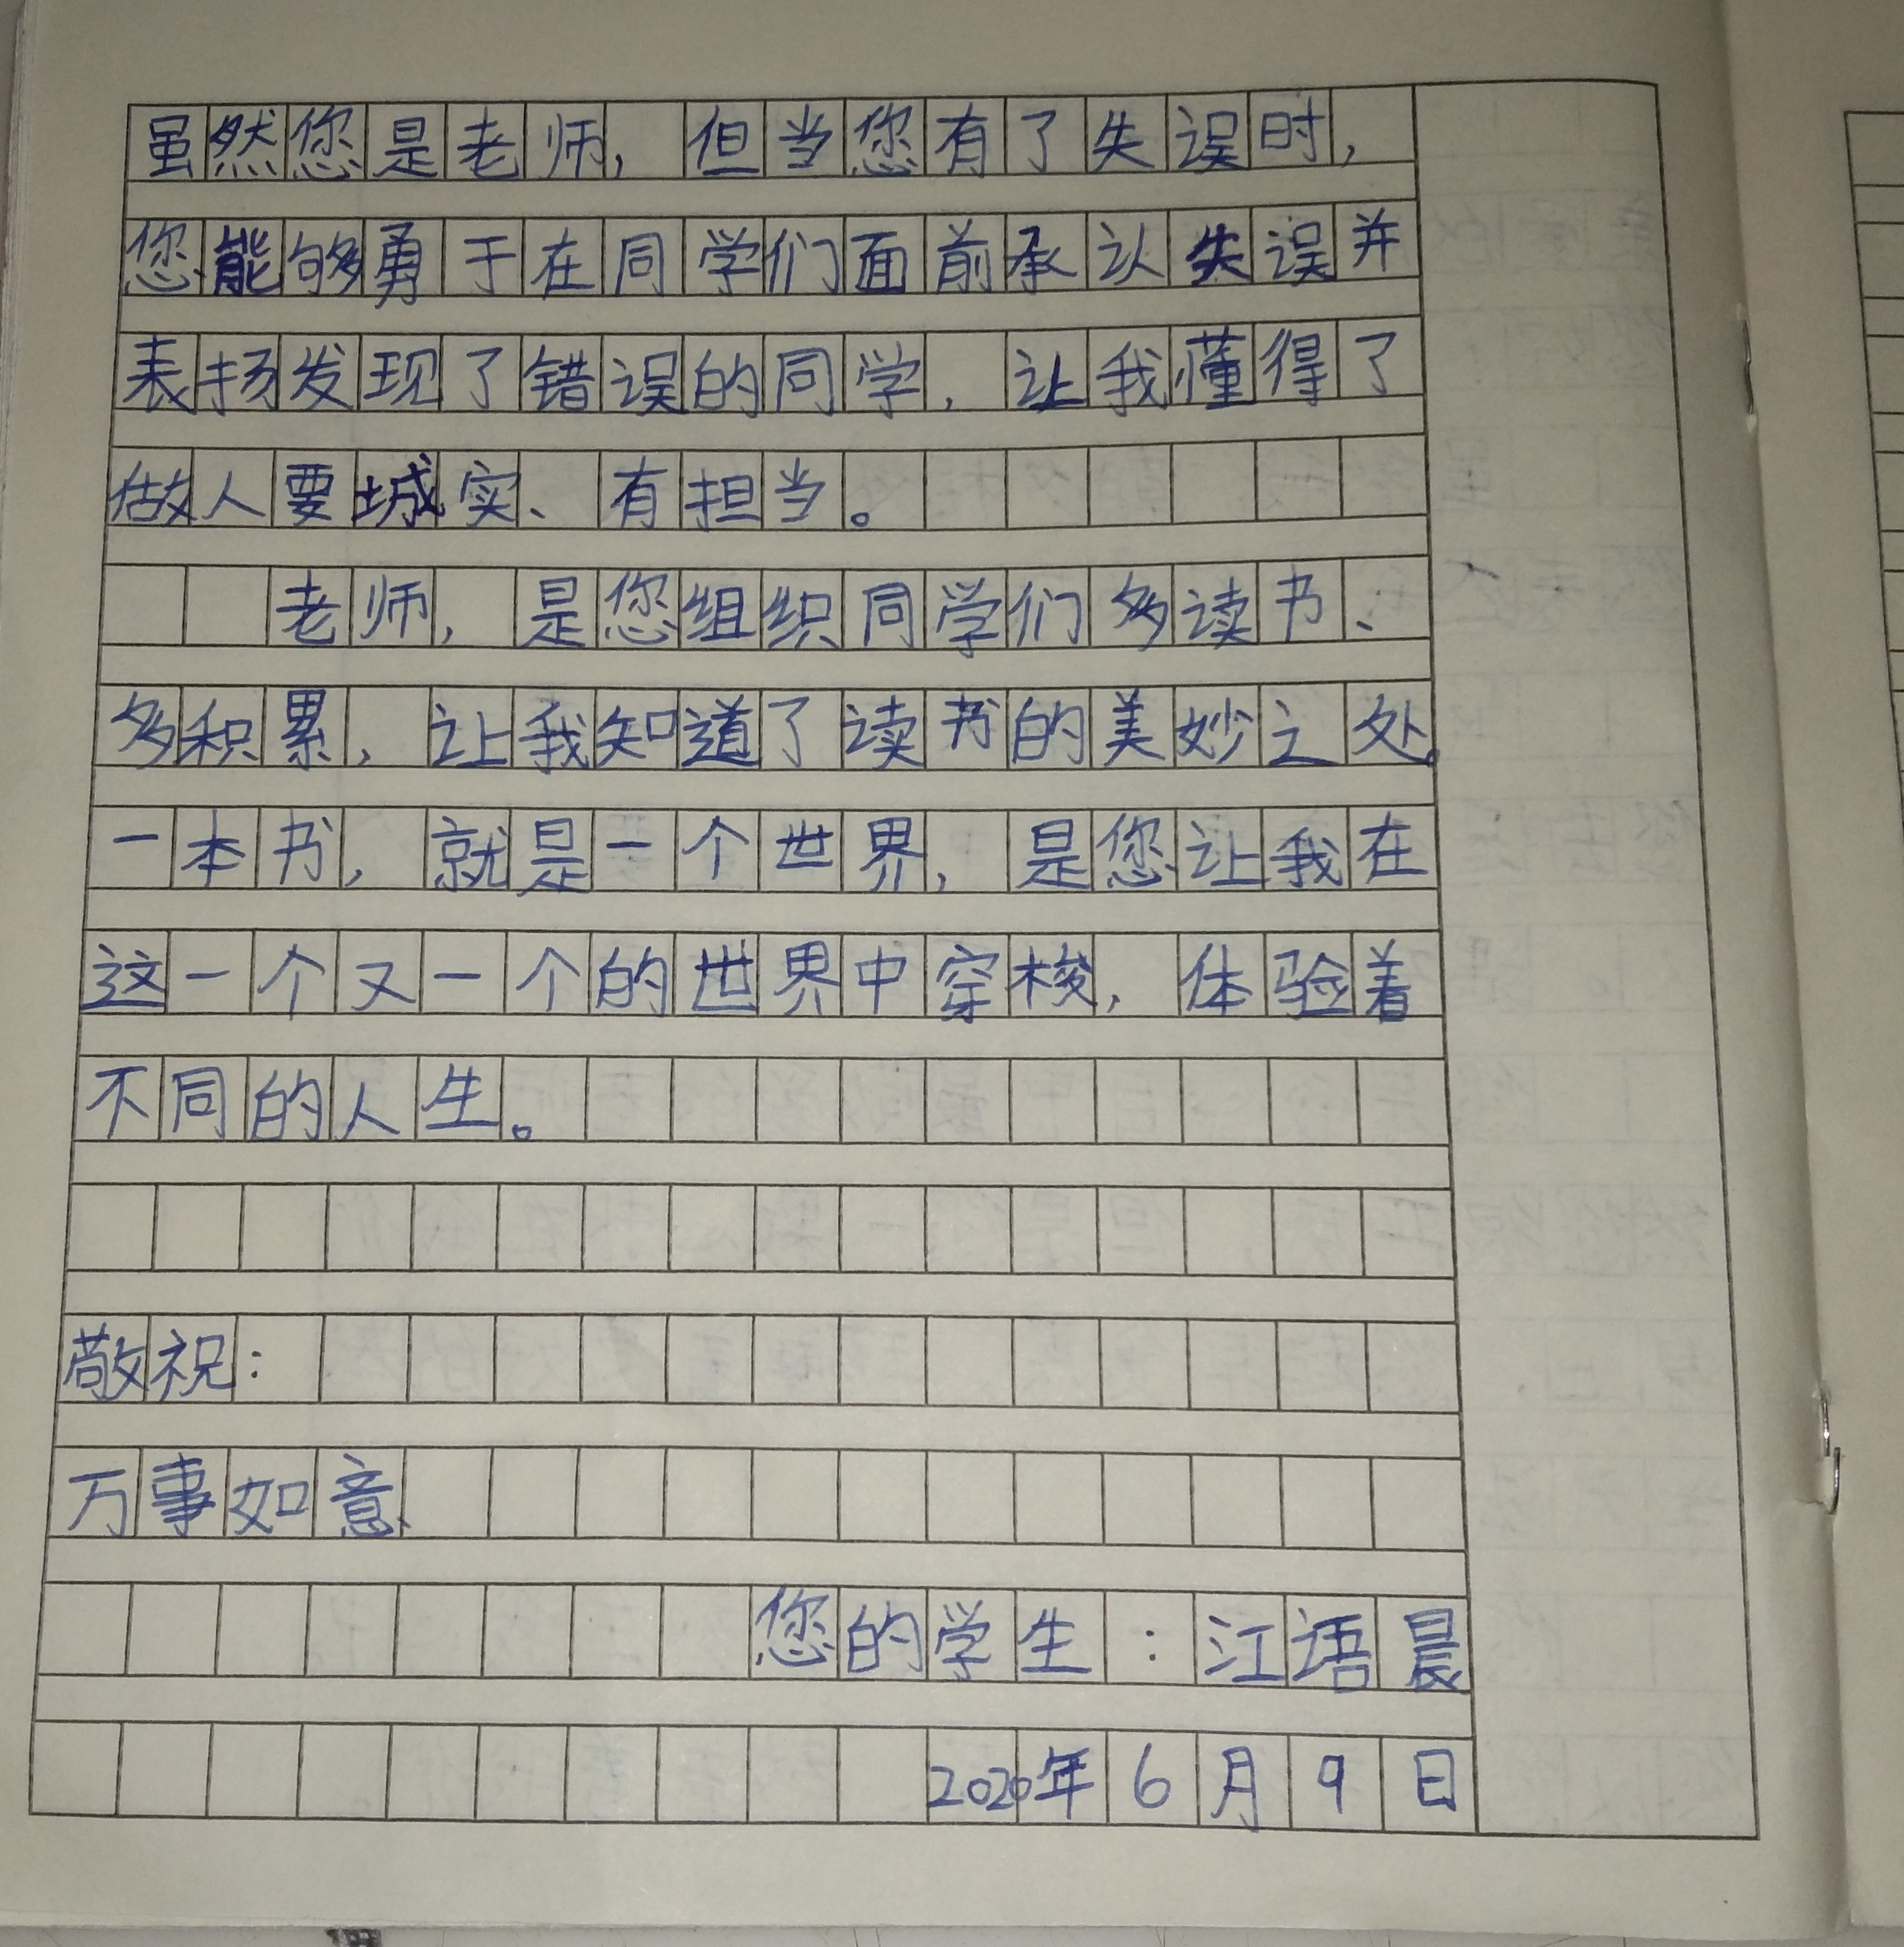 虽然您是老师，但当您有了失误时，
您能够勇于在同学们面前承认失误并
表扬发现了错误的同学，让我懂得了
做人要城实、有担当。
老师，是您组织同学们多读书、
多积累，让我知道了读书的美妙之处。
一本书，就是一个世界，是您让我在
这一个又一个的世界中穿梭，体验着
不同的人生。
敬祝：
万事如意
您的学生：江语晨
2020年6月9日